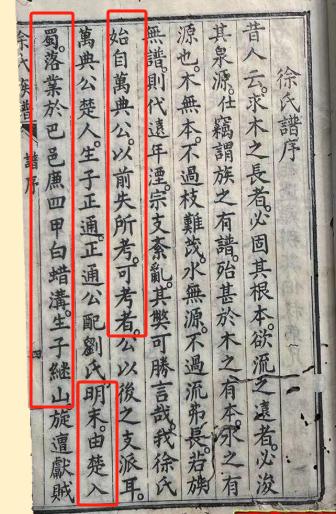 徐氏譜序
昔人云。求木之長者。必固其根本。欲流之遠者。必浚
其泉源。仕竊謂族之有譜。殆甚於木之有本。水之有
源也。木無本。不過枝難茂。水無源。不過流弗長。若族
無譜。則代遠年湮。宗支紊亂。其弊可勝言哉。我徐氏
始自萬典公。以前失所考。可考者。公以後之支派耳。
萬典公楚人。生子正通。正通公配劉氏。明末。由楚入
蜀。落業於巴邑廉四甲白蜡溝。生子継山。旋遭獻賊
徐氏族譜 譜序